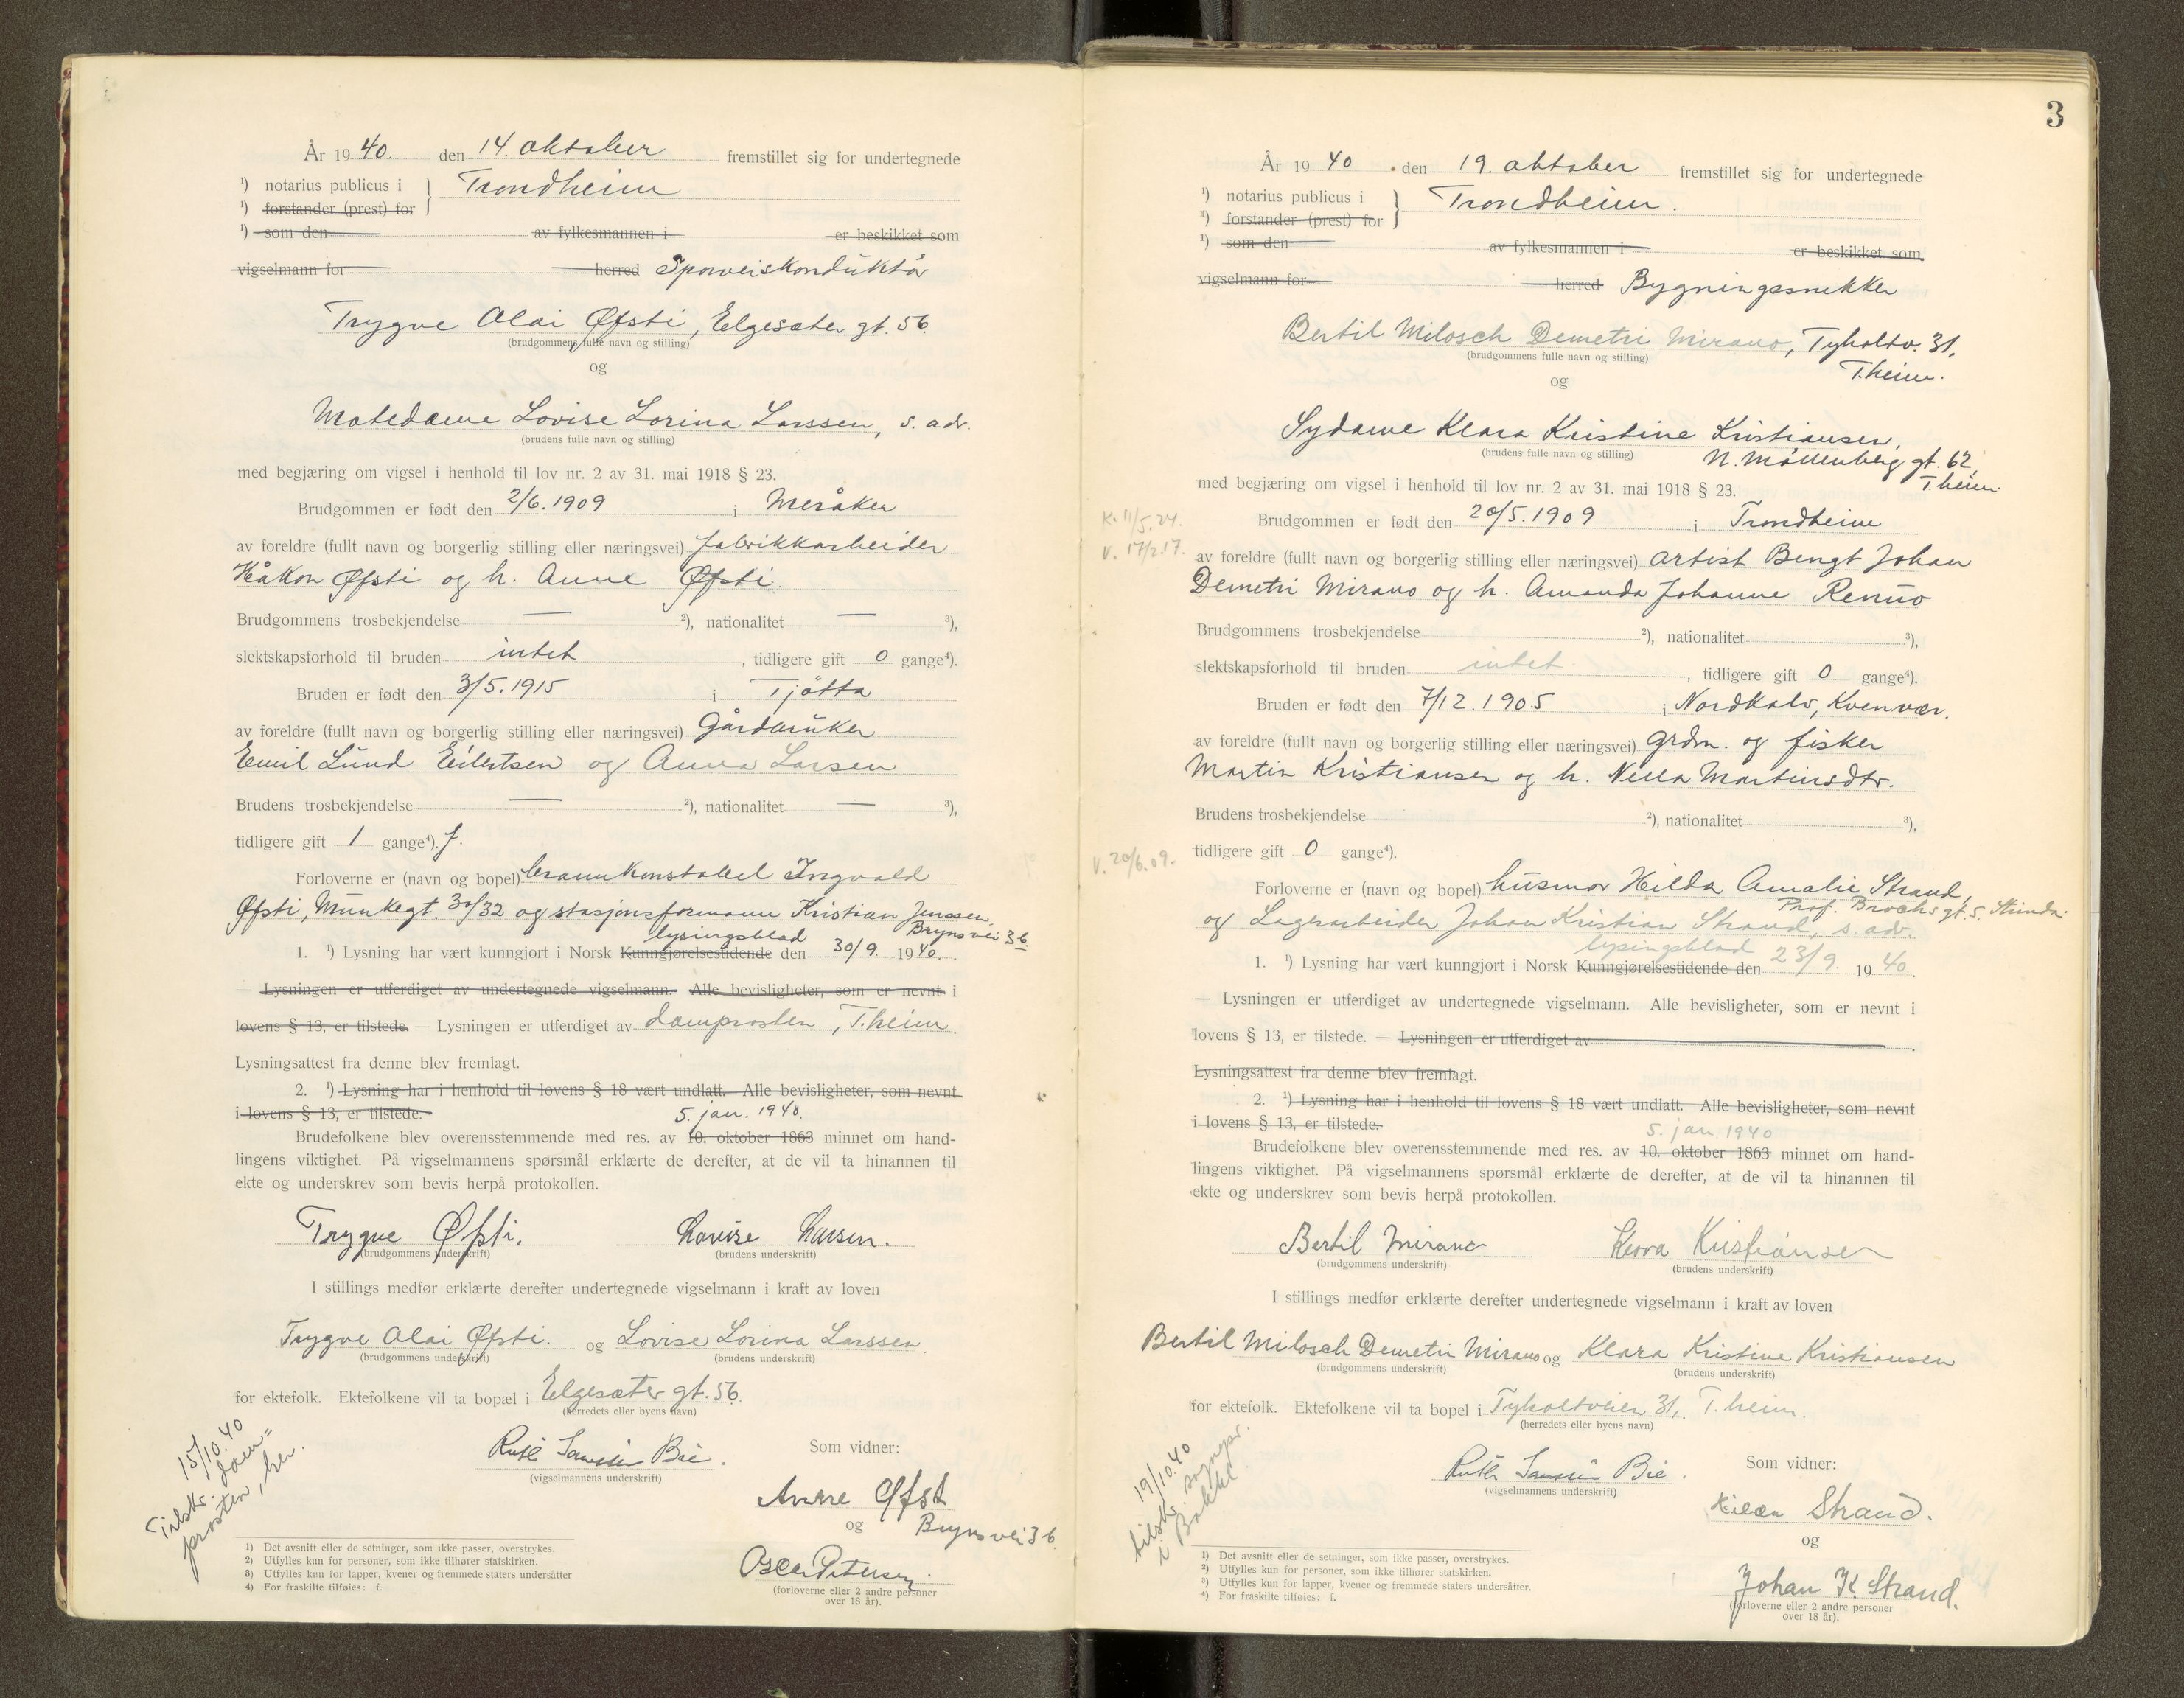 År 19 40. den 14. oktober fremstillet sig for undertegnede
¹) notarius publicus i } Trondheim
¹) forstander (prest) for
¹) som den av fylkesmannen i er beskikket som
vigselmann for herred Sporveiskonduktör
Trygve Olai Øfsti, Elgesæter gt. 56.
(brudgommens fulle navn og stilling)
og
Matedame Lovise Lorina Larssen, s. adr.
(brudens fulle navn og stilling)
med begjæring om vigsel i henhold til lov nr. 2 av 31. mai 1918 § 23.
Brudgommen er født den 2/6. 1909 i Meråker
av foreldre (fullt navn og borgerlig stilling eller næringsvei) fabrikkarbeider
Håkon Øfsti og h. Anne Øfsti.
Brudgommens trosbekjendelse — ²), nationalitet — ³),
slektskapsforhold til bruden intet , tidligere gift 0 gange⁴).
Bruden er født den 3/5. 1915 i Tjötta
av foreldre (fullt navn og borgerlig stilling eller næringsvei) Gårdbruker
Emil Lund Eilertsen og Anna Larsen
Brudens trosbekjendelse — ²), nationalitet — ³),
tidligere gift 1 gange⁴). f.
Forloverne er (navn og bopel) brannkonstabel Ingvald
Øfsti, Munkegt. 30/32 og stasjonsformann Kristian Jenssen,
Bryns vei 3b
lysingsblad
1. ¹) Lysning har vært kunngjort i Norsk Kunngjørelsestidende den 30/9. 19 40.
— Lysningen er utferdiget av undertegnede vigselmann. Alle bevisligheter, som er nevnt i
lovens § 13, er tilstede. — Lysningen er utferdiget av domprosten, T.heim.
Lysningsattest fra denne blev fremlagt.
2. ¹) Lysning har i henhold til lovens § 18 vært undlatt. Alle bevisligheter, som nevnt
i lovens § 13, er tilstede.
5. jan. 1940.
Brudefolkene blev overensstemmende med res. av 10. oktober 1863 minnet om hand-
lingens viktighet. På vigselmannens spørsmål erklærte de derefter, at de vil ta hinannen til
ekte og underskrev som bevis herpå protokollen.
Trygve Øfsti. Lovise Larsen.
(brudgommens underskrift) (brudens underskrift)
I stillings medfør erklærte derefter undertegnede vigselmann i kraft av loven
Trygve Olai Øfsti. og Lovise Lorina Larssen
(brudgommens underskrift) (brudens underskrift)
for ektefolk. Ektefolkene vil ta bopæl i Elgesæter gt. 56.
(herredets eller byens navn)
15/10.40
Tilskr. dom=
prosten, her.
Ruth Bie.
(vigselmannens underskrift)
Som vidner:
Øfsti
og Bryns vei 3b.
Petersen
(forloverne eller 2 andre personer
over 18 år).
1) Det avsnitt eller de setninger, som ikke passer, overstrykes.
2) Utfylles kun for personer, som ikke tilhører statskirken.
3) Utfylles kun for lapper, kvener og fremmede staters undersåtter
4) For fraskilte tilføies: f.
3
År 19 40 . den 19. oktober fremstillet sig for undertegnede
¹) notarius publicus i } Trondheim.
¹) forstander (prest) for
¹) som den av fylkesmannen i er beskikket som
vigselmann for herred Bygningssnekker
Bertil Milosch Demetri Mirano, Tyholtv. 31,
T.heim.
(brudgommens fulle navn og stilling)
og
Sydame Klara Kristine Kristiansen,
(brudens fulle navn og stilling) N. Möllenberg gt. 62,
T.heim.
med begjæring om vigsel i henhold til lov nr. 2 av 31. mai 1918 § 23.
K. 11/5.24.
V. 17/2.17.
Brudgommen er født den 20/5. 1909 i Trondheim
av foreldre (fullt navn og borgerlig stilling eller næringsvei) artist Bengt Johan
Demetri Mirano og h. Amanda Johanne Renno
Brudgommens trosbekjendelse ²), nationalitet ³),
slektskapsforhold til bruden intet , tidligere gift 0 gange⁴).
Bruden er født den 7/12. 1905 i Nordkalv, Kvenvær.
av foreldre (fullt navn og borgerlig stilling eller næringsvei) grdm. og fisker
Martin Kristiansen og h. Nella Martinsdtr.
Brudens trosbekjendelse ²), nationalitet ³),
tidligere gift 0 gange⁴).
V. 20/6.09.
Forloverne er (navn og bopel) husmor Hilda Amalie Strand,
Prof. Brochs gt. 5, Strinda.
og Lagerarbeider Johan Kristian Strand, s. adr.
lysingsblad
1. ¹) Lysning har vært kunngjort i Norsk Kunngjørelsestidende den 23/9. 19 40.
— Lysningen er utferdiget av undertegnede vigselmann. Alle bevisligheter, som er nevnt i
lovens § 13, er tilstede. — Lysningen er utferdiget av
Lysningsattest fra denne blev fremlagt.
2. ¹) Lysning har i henhold til lovens § 18 vært undlatt. Alle bevisligheter, som nevnt
i lovens § 13, er tilstede.
5. jan 1940
Brudefolkene blev overensstemmende med res. av 10. oktober 1863 minnet om hand-
lingens viktighet. På vigselmannens spørsmål erklærte de derefter, at de vil ta hinannen til
ekte og underskrev som bevis herpå protokollen.
Bertil Mirano Klara Kristiansen
(brudgommens underskrift) (brudens underskrift)
I stillings medfør erklærte derefter undertegnede vigselmann i kraft av loven
Bertil Milosch Demetri Mirano og Klara Kristine Kristiansen
(brudgommens underskrift) (brudens underskrift)
for ektefolk. Ektefolkene vil ta bopel i Tyholtveien 31, T.heim.
(herredets eller byens navn)
19/10.40
tilskr. sognepr.
i Bakke
Ruth Bie.
(vigselmannens underskrift)
Som vidner:
Hilda Strand.
og
Johan K. Strand.
(forloverne eller 2 andre personer
over 18 år).
1) Det avsnitt eller de setninger, som ikke passer, overstrykes.
2) Utfylles kun for personer, som ikke tilhører statskirken.
3) Utfylles kun for lapper, kvener og fremmede staters undersåtter.
4) For fraskilte tilføies: f.